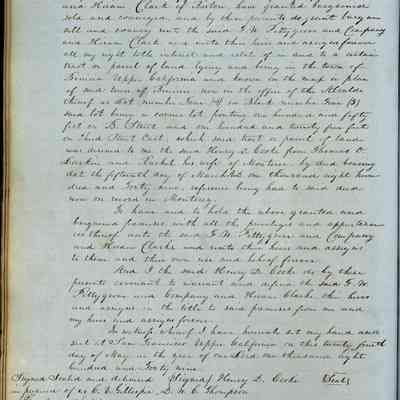 and Hiram Clark of Boston, have granted bargained
sold and conveyed, and by these presents do, grant bargain
sell and convey unto the said G. W. Pettygrove and Company
and Hiram Clark and unto their heirs and assigns forever
all my right title interest and estate of in and to a certain
tract or parcel of land lying and being in the town of
Benicia Upper California and known in the map or plan
of said town of Benicia now in the office of the Alcalde
thereof as Lot number four (4) in Block number five (5)
said lot being a corner lot fronting one hundred and fifty
feet on B. Street and one hundred and twenty five feet
on Third Street East, which said tract or parcel of land
was deeded to me the said Henry D. Cooke from Thomas O
Larkin and Rachel his wife of Monterey by deed bearing
date the fifteenth day of March A.D. one thousand eight hun-
dred and Forty nine, reference being had to said deed
now on record in Monterey.
To have and to hold the above granted and
bargained premises with all the privileges and appurtenan-
ces thereof unto the said G. W. Pettygrove and Company
and Hiram Clarke and unto their heirs and assigns
to them and their own use and behoof forever.
And I the said Henry D. Cooke do by these
presents covenant to warrant and defend the said G. W.
Pettygrove and Company and Hiram Clarke their heirs
and assigns in the title to said premises from me and
my heirs and assigns forever.
In witness whereof I have hereunto set my hand and
seal at San Francisco Upper California on this twenty fourth
day of May in the year of our Lord one thousand eight
hundred and Forty nine.
Signed Sealed and delivered (Signed) Henry D. Cooke (Seal)
in presence of us C. V. Gillespie, D. W. C. Thompson